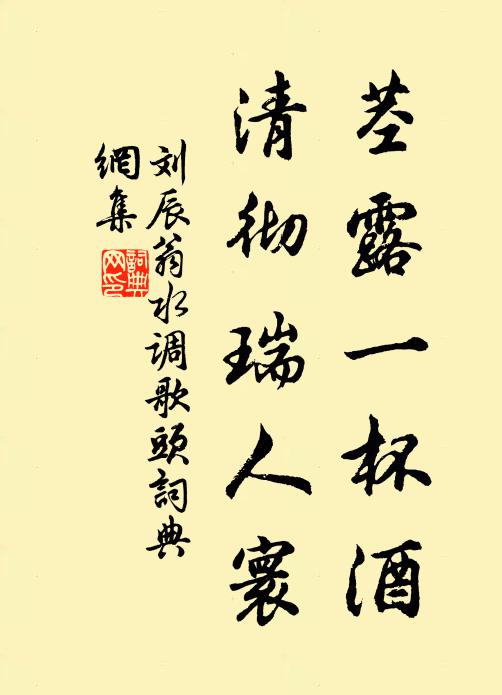 茎露一杯酒
清彻瑞人寰
刘辰翁水调歌頭詞典
網集
詞典网印